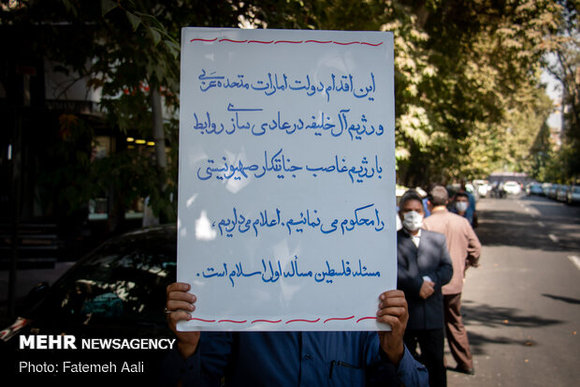 این اقدام دولت امارات متحده عربی
و رژیم آل خلیفه در عادی سازی روابط
با رژیم غاصب جنایتکار صهیونیستی
را محکوم می نمائیم. اعلام می داریم،
مسئله فلسطین مسأله اول اسلام است.
MEHR NEWSAGENCY
Photo: Fatemeh Asari